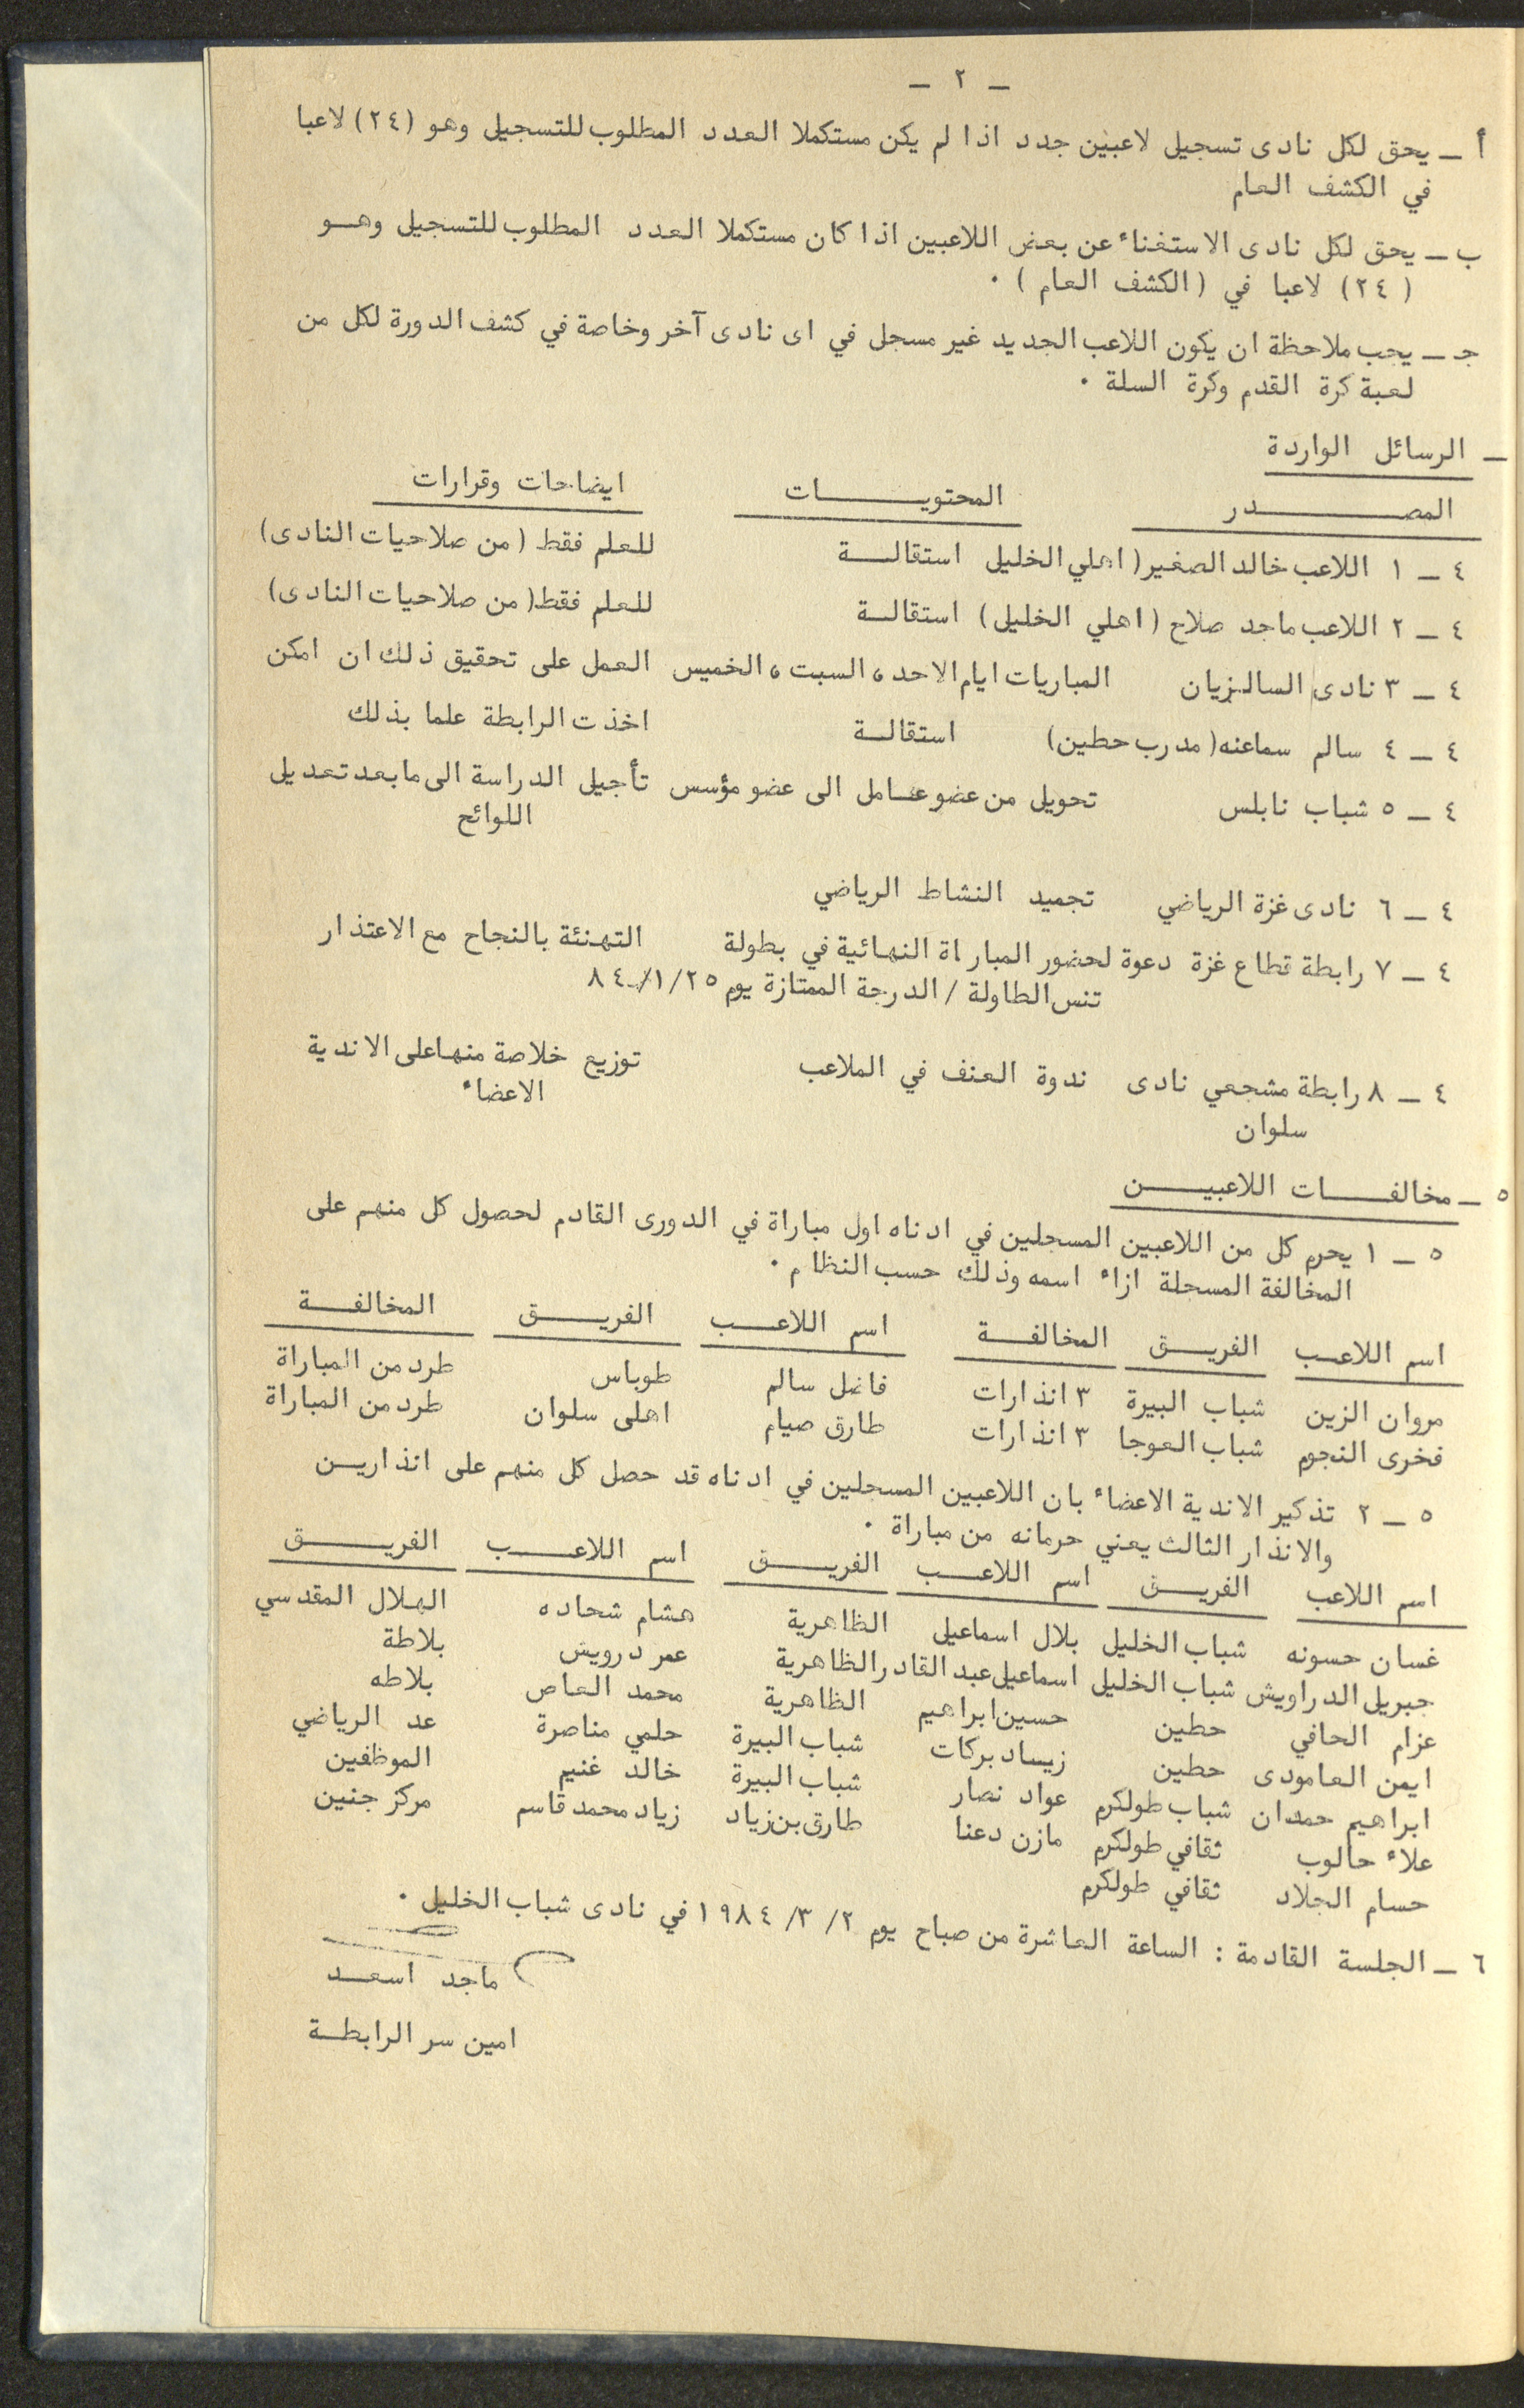 - ٢ -
أ - يحق لكل نادى تسجيل لاعبين جدد اذا لم يكن مستكملا العدد المطلوب للتسجيل وهو (٢٤) لاعبا
في الكشف العام
ب - يحق لكل نادى الاستغناء عن بعض اللاعبين اذا كان مستكملا العدد المطلوب للتسجيل وهو
(٢٤) لاعبا في (الكشف العام) ٠
جـ - يجب ملاحظة ان يكون اللاعب الجديد غير مسجل في اى نادى آخر وخاصة في كشف الدورة لكل من
لعبة كرة القدم وكرة السلة ٠
- الرسائل الواردة
المصدر المحتويات ايضاحات وقرارات
٤ - ١ اللاعب خالد الصغير (اهلي الخليل استقالة للعلم فقط (من صلاحيات النادى)
٤ - ٢ اللاعب ماجد صلاح (اهلي الخليل) استقالة للعلم فقط (من صلاحيات النادى)
٤ - ٣ نادى السالزيان المباريات ايام الاحد، السبت، الخميس العمل على تحقيق ذلك ان امكن
٤ - ٤ سالم سماعنه (مدرب حطين) استقالة اخذت الرابطة علما بذلك
٤ - ٥ شباب نابلس تحويل من عضو عامل الى عضو مؤسس تأجيل الدراسة الى ما بعد تعديل
اللوائح
٤ - ٦ نادى غزة الرياضي تجميد النشاط الرياضي
٤ - ٧ رابطة قطاع غزة دعوة لحضور المباراة النهائية في بطولة التهنئة بالنجاح مع الاعتذار
تنس الطاولة / الدرجة الممتازة يوم ٢٥/١/٨٤
٤ - ٨ رابطة مشجعي نادى ندوة العنف في الملاعب توزيع خلاصة منها على الاندية
سلوان الاعضاء
٥ - مخالفات اللاعبين
٥ - ١ يحرم كل من اللاعبين المسجلين في ادناه اول مباراة في الدورى القادم لحصول كل منهم على
المخالفة المسجلة ازاء اسمه وذلك حسب النظام ٠
اسم اللاعب الفريق المخالفة اسم اللاعب الفريق المخالفة
مروان الزين شباب البيرة ٣ انذارات فاضل سالم طوباس طرد من المباراة
فخرى النجوم شباب العوجا ٣ انذارات طارق صيام اهلى سلوان طرد من المباراة
٥ - ٢ تذكير الاندية الاعضاء بان اللاعبين المسجلين في ادناه قد حصل كل منهم على انذارين
والانذار الثالث يعني حرمانه من مباراة ٠
اسم اللاعب الفريق اسم اللاعب الفريق اسم اللاعب الفريق
غسان حسونه شباب الخليل بلال اسماعيل الظاهرية هشام شحاده الهلال المقدسي
جبريل الدراويش شباب الخليل اسماعيل عبد القادر الظاهرية عمر درويش بلاطة
عزام الحافي حطين حسين ابراهيم الظاهرية محمد العاص بلاطه
ايمن العامودى حطين زياد بركات شباب البيرة حلمي مناصرة عد الرياضي
ابراهيم حمدان شباب طولكرم عواد نصار شباب البيرة خالد غنيم الموظفين
علاء حالوب ثقافي طولكرم مازن دعنا طارق بن زياد زياد محمد قاسم مركز جنين
حسام الجلاد ثقافي طولكرم
٦ - الجلسة القادمة : الساعة العاشرة من صباح يوم ٢ /٣/ ١٩٨٤ في نادى شباب الخليل ٠
ماجد اسعد
امين سر الرابطة